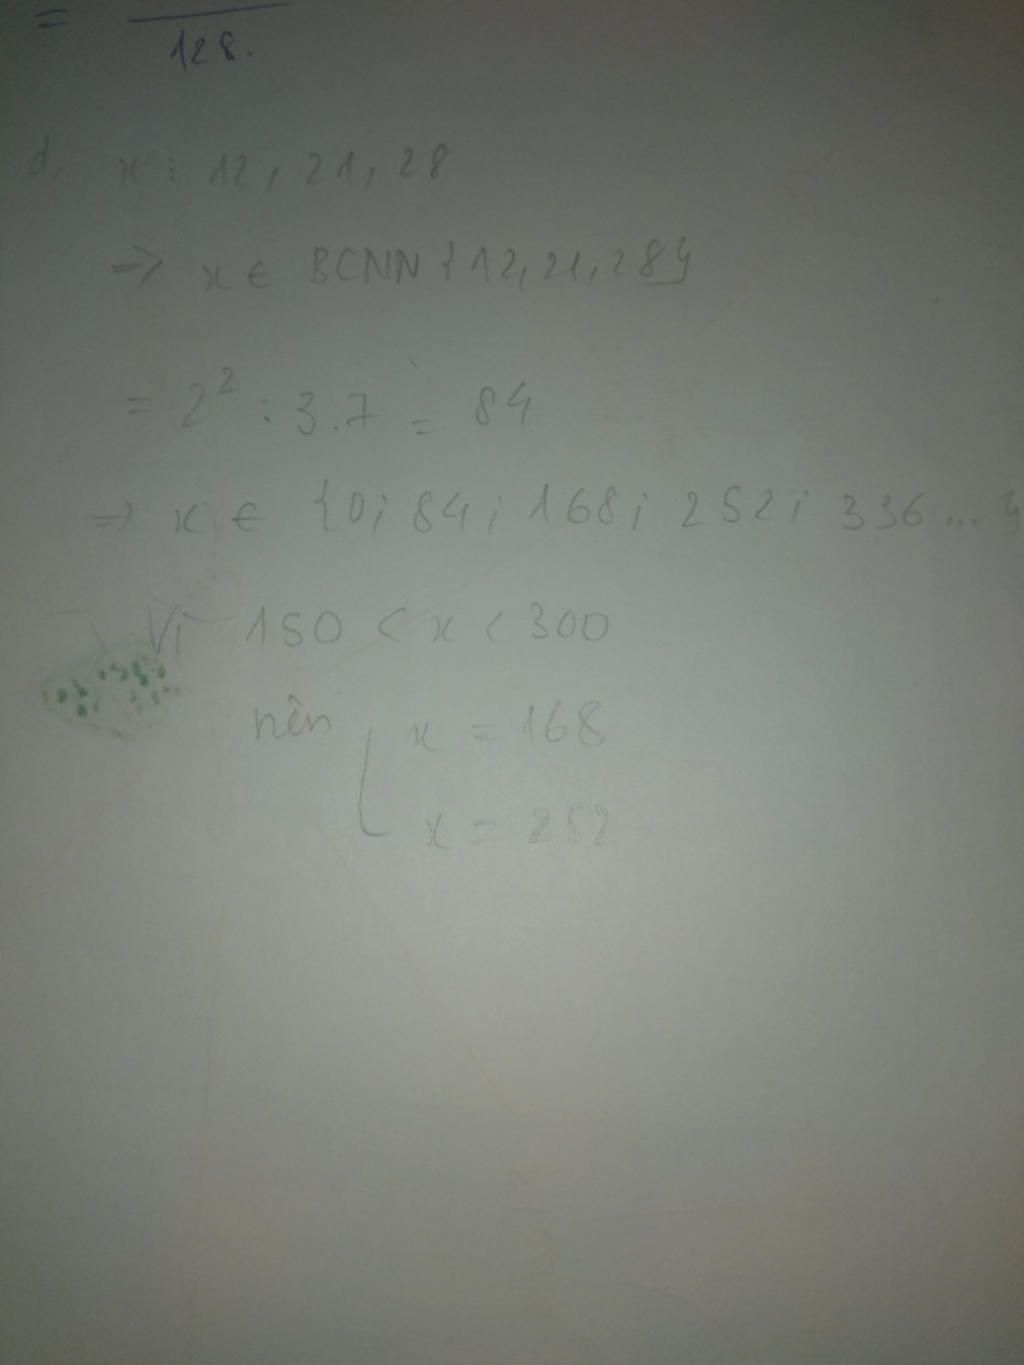 =
128.
d, x ⋮ 12, 21, 28
=> x ∈ BCNN {12, 21, 28}
= 2² : 3 . 7 = 84
=> x ∈ {0; 84; 168; 252; 336 ... }
Vì 150 < x < 300
nên [ x = 168
x = 252